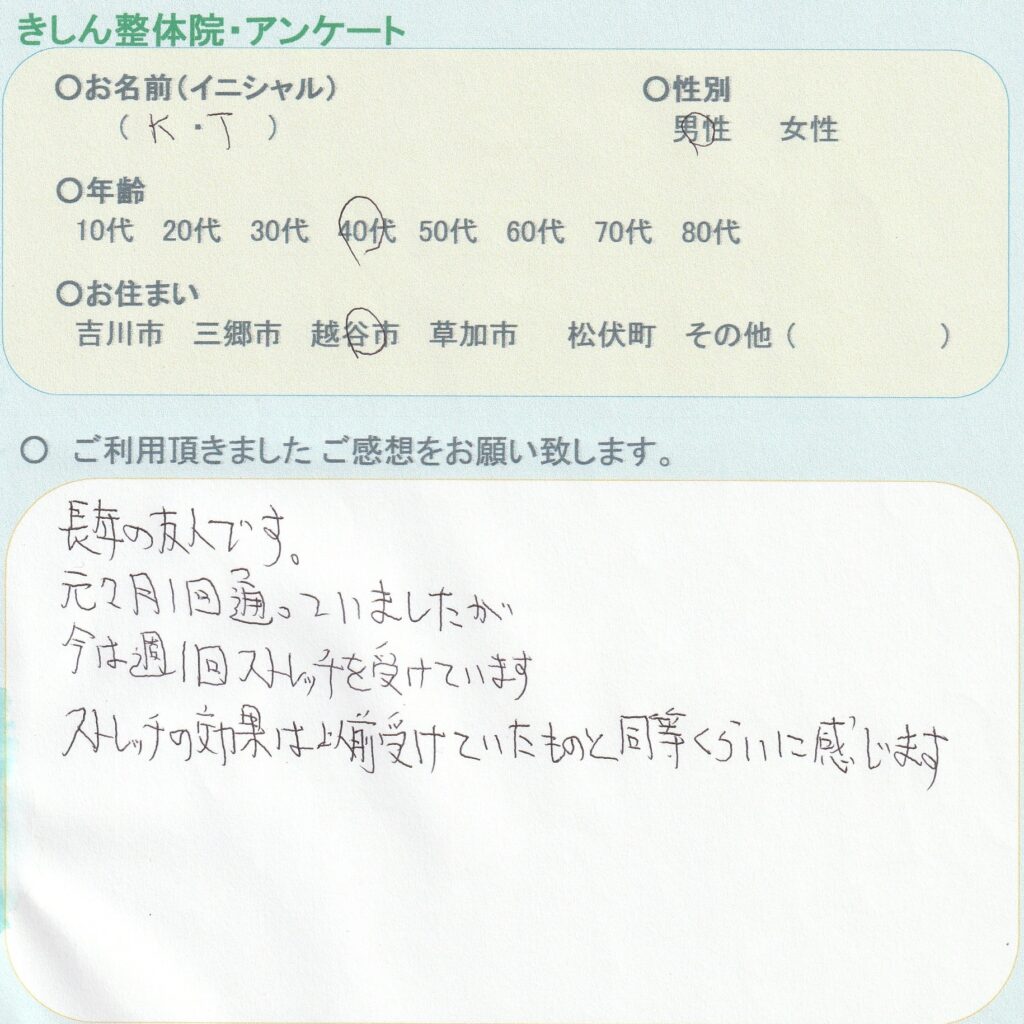 きしん整体院・アンケート
〇お名前(イニシャル) 〇性別
( K・T ) 男性 女性
〇年齢
10代 20代 30代 40代 50代 60代 70代 80代
〇お住まい
吉川市 三郷市 越谷市 草加市 松伏町 その他( )
〇 ご利用頂きました ご感想をお願い致します。
長年の友人です。
元々月1回通っていましたが
今は週1回ストレッチを受けています
ストレッチの効果は以前受けていたものと同等くらいに感じます